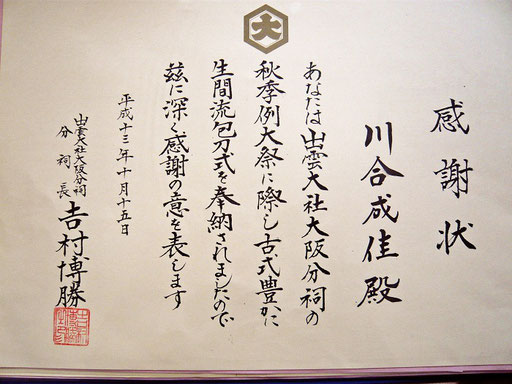 大
感謝状
川合成佳殿
あなたは出雲大社大阪分祠の
秋季例大祭に際し古式豊かに
生間流包刀式を奉納されましたので
茲に深く感謝の意を表します
平成十三年十月十五日
出雲大社大阪分祠
分祠長 吉村博勝